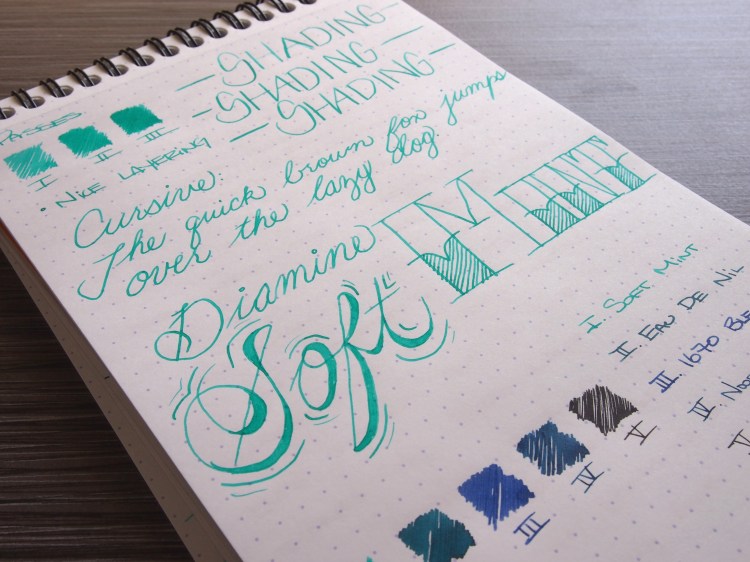 SHADING
SHADING
SHADING
PASSES
I II III
• NICE LAYERING
Cursive:
The quick brown fox jumps
over the lazy dog.
Diamine
Soft
MINT
I. SOFT MINT
II. EAU DE NIL
III. 1670
IV.
V
III IV V